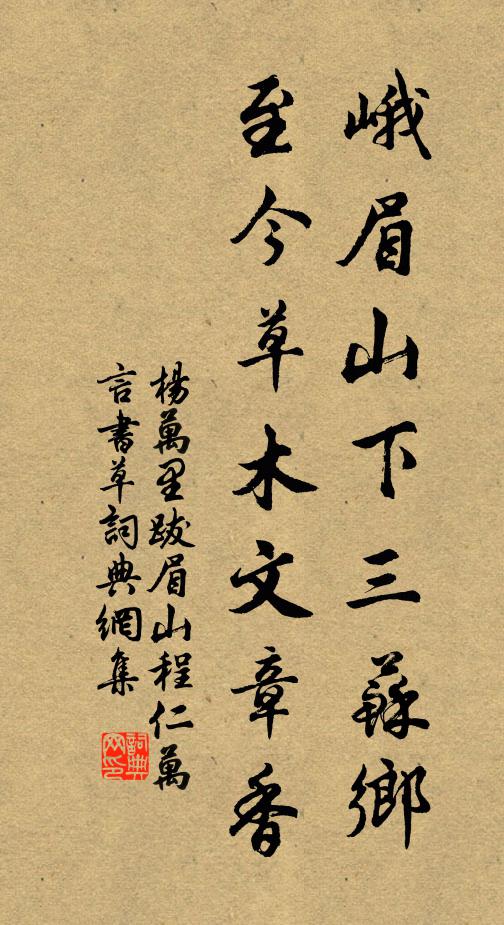 峨眉山下三蘇鄉
至今草木文章香
楊萬里跋眉山程仁萬
言書草詞典網集
詞典网印